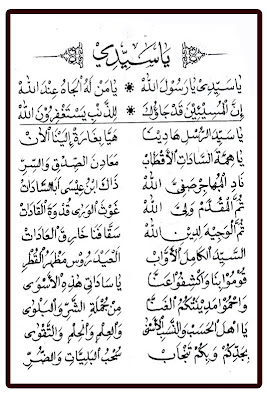 يَاسَيِّدِيْ
يَاسَيِّدِيْ يَارَسُوْلَ اللهْ * يَامَنْ لَهُ الْجَاهُ عِنْدَ اللهْ
إِنَّ الْمُسِيْئِيْنَ قَدْ جَاؤُكْ * لِلذَّنْبِ يَسْتَغْفِرُوْنَ اللهْ
يَاسَيِّدَ الرُّسْلِ هَادِيْنَا هَيَّا بِغَارَةْ إِلَيْنَا الْآنْ
يَاهِمَّةَ السَّادَاتِ الْأَقْطَابْ مَعَادِنَ الصِّدْقِ وَالسِّرِّ
نَادِ الْمُهَاجِرْ صَفِيَّ اللهْ ذَاكَ ابْنُ عِيْسَى أَبَا السَّادَاتْ
ثُمَّ الْمُقَدَّمْ وَلِيَّ اللهْ غَوْثَ الْوَرَى قُدْوَةَ الْقَادَاتْ
ثُمَّ الْوَجِيْهْ لِدِيْنِ اللهْ سَقَّافْنَا خَارِقَ الْعَادَاتْ
السَّيِّدَ الْكَامِلَ الْأَوَّابْ الْعَيْدَرُوْسْ مَظْهَرَ الْقُطْرِ
قُوْمُوْا بِنَا وَاكْشِفُوْا عَنَّا يَاسَادَاتِيْ هَذِهِ الْأَسْوَى
وَاحْمُوْا مَدِيْنَتْكُمُ الْغَنَّا مِنْ جُمْلَةِ الشَّرِّ وَالْبَلْوَى
يَا اهْلَ الْحَسَبْ وَالنَّسَبْ الْأَسْنَى وَالْعِلْمِ وَالْحِلْمِ وَالتَّقْوَى
بِجَدِّكُمْ وَبِكُمْ تَنْجَابْ سُحْبُ الْبَلِيَّاتِ وَالضُّرِّ